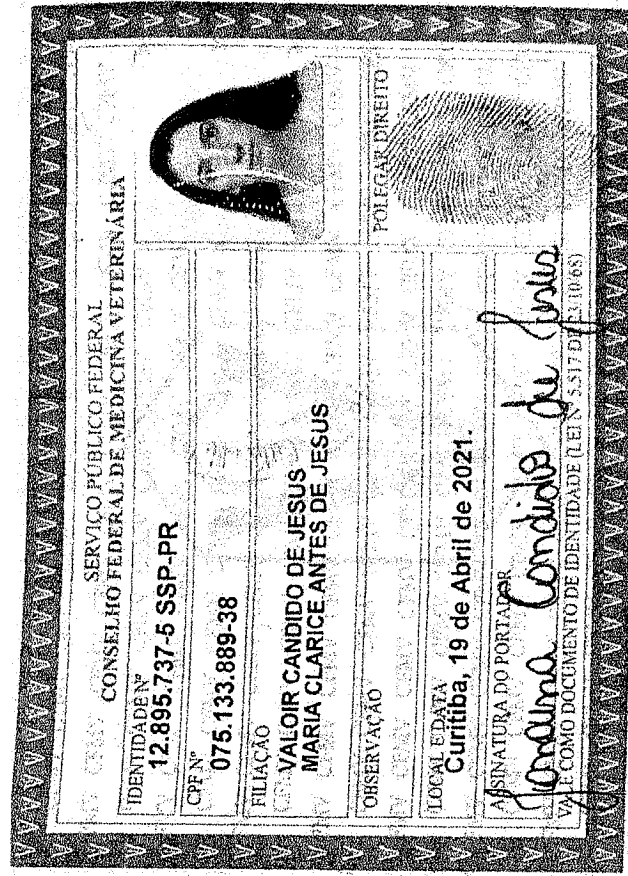 SERVIÇO PÚBLICO FEDERAL
CONSELHO FEDERAL DE MEDICINA VETERINÁRIA
IDENTIDADE Nº
12.895.737-5 SSP-PR
CPF Nº
075.133.889-38
FILIAÇÃO
VALOIR CANDIDO DE JESUS
MARIA CLARICE ANTES DE JESUS
OBSERVAÇÃO
LOCAL E DATA
Curitiba, 19 de Abril de 2021.
POLEGAR DIREITO
ASSINATURA DO PORTADOR
Janaina Candido de Jesus
VALE COMO DOCUMENTO DE IDENTIDADE (LEI Nº 5.517 DE 23/10/68)